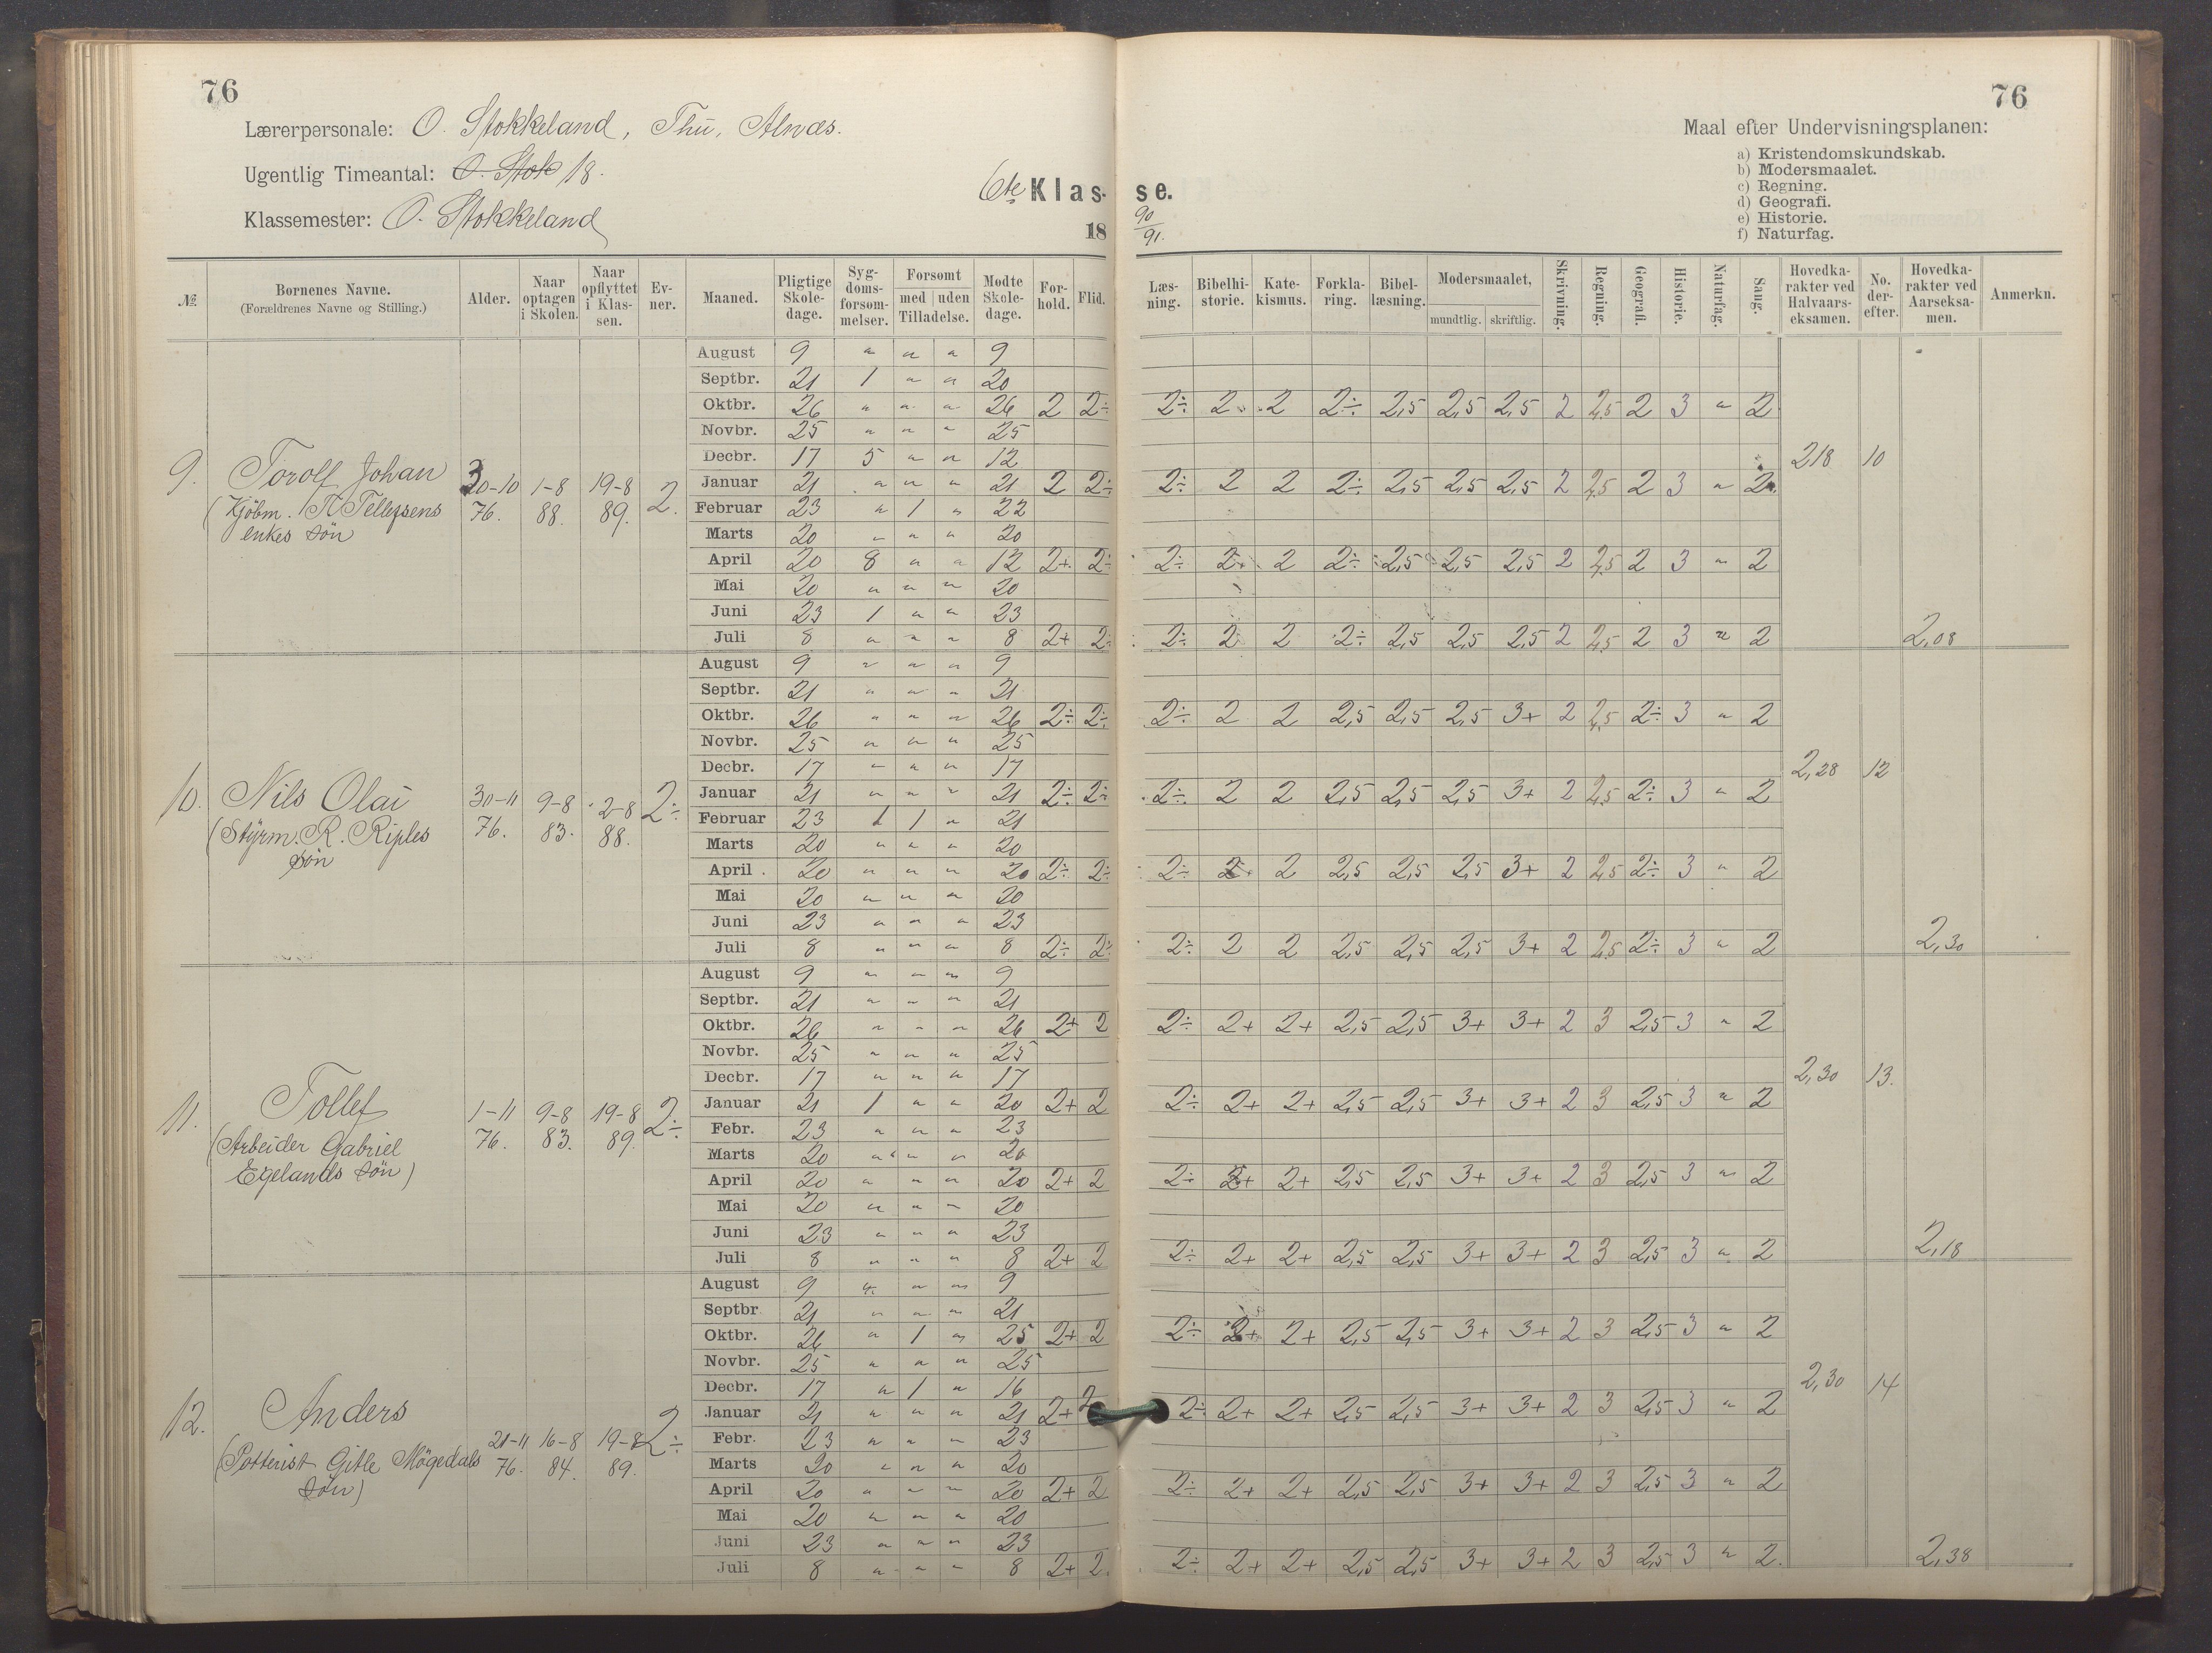 76
76
Lærerpersonale: O. Stokkeland, Thu, Alnæs.
Ugentlig Timeantal: O. Stok 18.
Klassemester: O. Stokkeland
6te Klas- se.
18 90/91.
Maal efter Undervisningsplanen:
a) Kristendomskundskab.
b) Modersmaalet.
c) Regning.
d) Geografi.
e) Historie.
f) Naturfag.
№ | Børnenes Navne. (Forældrenes Navne og Stilling.) | Alder. | Naar optagen i Skolen. | Naar opflyttet i Klassen. | Evner. | Maaned. | Pligtige Skoledage. | Sygdomsforsommelser. | Forsomt med Tilladelse. | uden Tilladelse. | Mødte Skoledage. | Forhold. | Flid. | Læsning. | Bibelhistorie. | Katekismus. | Forklaring. | Bibellæsning. | Modersmaalet, mundtlig. | skriftlig. | Skrivning. | Regning. | Geografi. | Historie. | Naturfag. | Sang. | Hovedkarakter ved Halvaarseksamen. | No. derefter. | Hovedkarakter ved Aarseksamen. | Anmerkn.
9. Torolf Johan
(Kjöbm. T. Tellefsens
enkes sön
30-10 76. | 1-8 88. | 19-8 89. | 2.
August 9 " " " 9
Septbr. 21 1 " " 20
Oktbr. 26 " " " 26 2 2÷ 2÷ 2 2 2÷ 2,5 2,5 2,5 2 2,5 2 3 " 2
Novbr. 25 " " " 25
Decbr. 17 5 " " 12 218 10
Januar 21 " " " 21 2 2÷ 2÷ 2 2 2÷ 2,5 2,5 2,5 2 2,5 2 3 " 2
Februar 23 " 1 " 22
Marts 20 " " " 20
April 20 8 " " 12 2+ 2÷ 2÷ 2 2 2÷ 2,5 2,5 2,5 2 2,5 2 3 " 2
Mai 20 " " " 20
Juni 23 1 " " 23
Juli 8 " " " 8 2+ 2÷ 2÷ 2 2 2÷ 2,5 2,5 2,5 2 2,5 2 3 " 2 2,08
10. Nils Olai
(Styrm. R. Riples
sön
30-11 76. | 9-8 83. | 2-8 88. | 2÷
August 9 " " " 9
Septbr. 21 " " " 21
Oktbr. 26 " " " 26 2÷ 2÷ 2÷ 2 2 2,5 2,5 2,5 3+ 2 2,5 2÷ 3 " 2
Novbr. 25 " " " 25
Decbr. 17 " " " 17 2,28 12
Januar 21 " " " 21 2÷ 2÷ 2÷ 2 2 2,5 2,5 2,5 3+ 2 2,5 2÷ 3 " 2
Februar 23 1 1 " 21
Marts 20 " " " 20
April 20 " " " 20 2÷ 2÷ 2÷ 2 2 2,5 2,5 2,5 3+ 2 2,5 2÷ 3 " 2
Mai 20 " " " 20
Juni 23 " " " 23
Juli 8 " " " 8 2÷ 2÷ 2÷ 2 2 2,5 2,5 2,5 3+ 2 2,5 2÷ 3 " 2 2,30
11. Tollef
(Arbeider Gabriel
Egelands sön)
1-11 76. | 9-8 83. | 19-8 89. | 2÷
August 9 " " " 9
Septbr. 21 " " " 21
Oktbr. 26 " " " 26 2+ 2 2÷ 2+ 2+ 2,5 2,5 3+ 3+ 2 3 2,5 3 " 2
Novbr. 25 " " " 25
Decbr. 17 " " " 17 2,30 13.
Januar 21 1 " " 20 2+ 2 2÷ 2+ 2+ 2,5 2,5 3+ 3+ 2 3 2,5 3 " 2
Febr. 23 " " " 23
Marts 20 " " " 20
April 20 " " " 20 2+ 2 2÷ 2+ 2+ 2,5 2,5 3+ 3+ 2 3 2,5 3 " 2
Mai 20 " " " 20
Juni 23 " " " 23
Juli 8 " " " 8 2+ 2 2÷ 2+ 2+ 2,5 2,5 3+ 3+ 2 3 2,5 3 " 2 2,18
12. Anders
(Potterist Gitle Mögedals
sön)
21-11 76. | 16-8 84. | 19-8 89. | 2÷
August 9 " " " 9
Septbr. 21 " " " 21
Oktbr. 26 " 1 " 25 2+ 2 2÷ 2+ 2+ 2,5 2,5 3+ 3+ 2 3 2,5 3 " 2
Novbr. 25 " " " 25
Decbr. 17 " 1 " 16 2,30 14
Januar 21 " " " 21 2+ 2 2÷ 2+ 2+ 2,5 2,5 3+ 3+ 2 3 2,5 3 " 2
Febr. 23 " " " 23
Marts 20 " " " 20
April 20 " " " 20 2+ 2 2÷ 2+ 2+ 2,5 2,5 3+ 3+ 2 3 2,5 3 " 2
Mai 20 " " " 20
Juni 23 " " " 23
Juli 8 " " " 8 2+ 2. 2÷ 2+ 2+ 2,5 2,5 3+ 3+ 2 3 2,5 3 " 2. 2,38